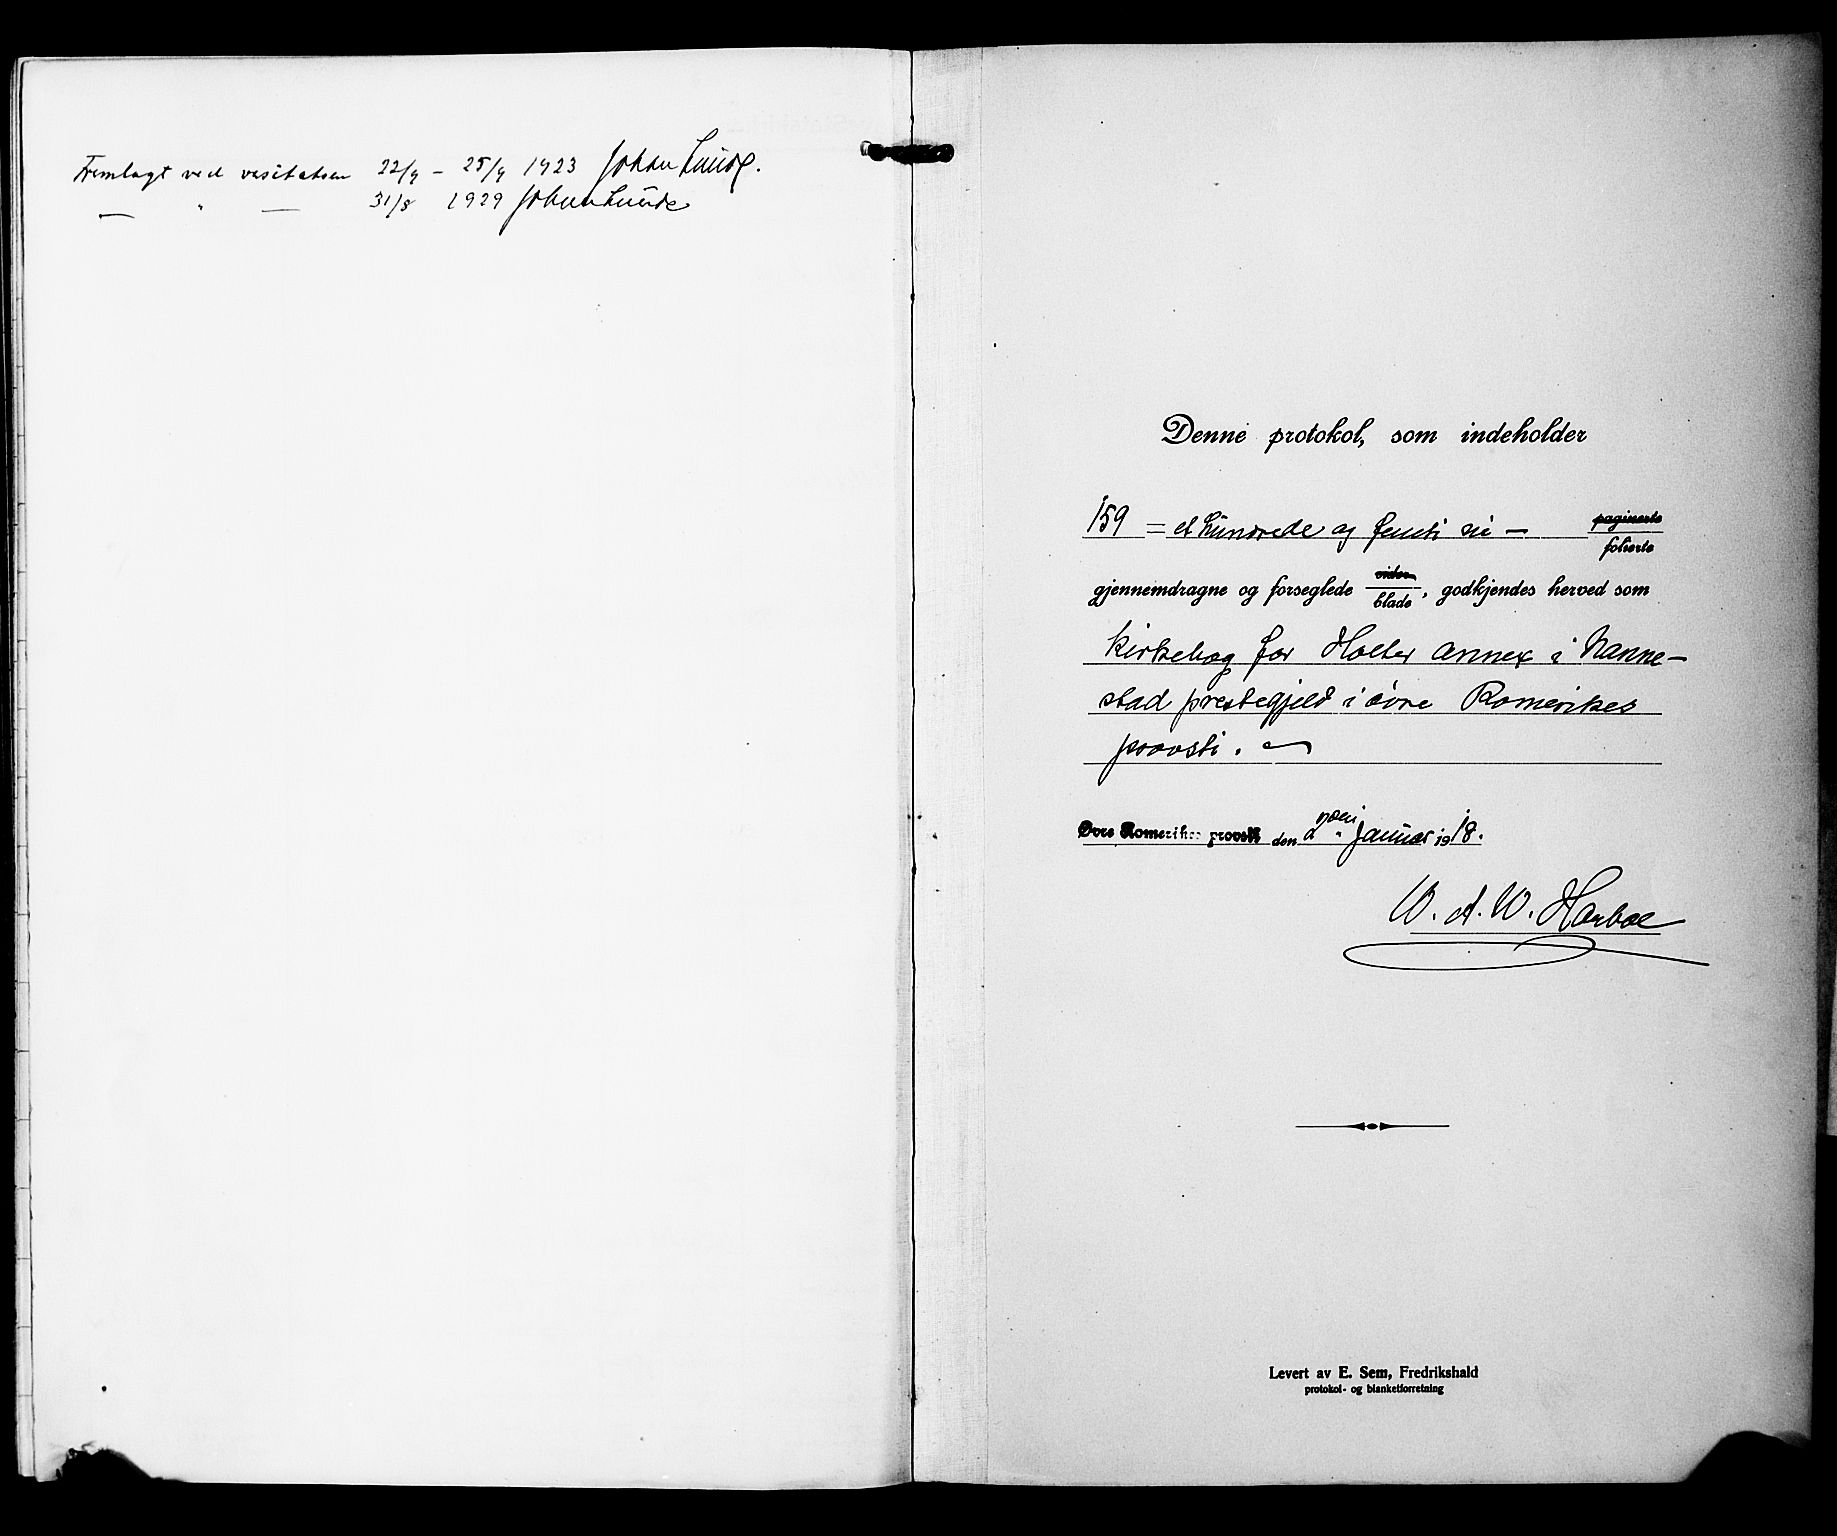 Fremlagt ved visitatsen 22/9 – 25/9 1923 Johan Lunde.
— " — 31/8 1929 Johan Lunde
Denne protokol, som indeholder
159 = et hundrede og femti ni —
paginerte
folierte
gjennemdragne og forseglede sider blade, godkjendes herved som
kirkebog for Holter annex i Nanne-
stad prestegjeld i øvre Romerikes
provsti.
Øvre Romerikes provsti den januar 1918.
W. A. W. Harboe
Levert av E. Sem, Fredrikshald
protokol- og blanketforretning